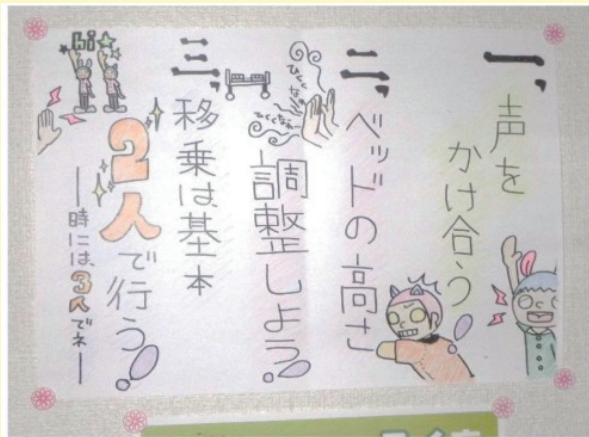 一、
声を
かけ合う!
二、
ベッドの高さ
調整しよう!
ひくくなぁれ
ひくくなぁれ
三、
移乗は基本
2人で行う!
―時には、3人でネ―
hi☆